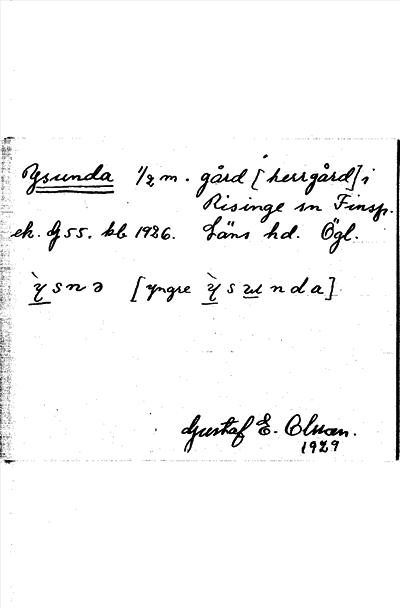 Ysunda 1/2 m. gård [herrgård] i
Risinge sn Finsp.
ek. bl 55. kb 1926. Läns hd. Ögl.
ỳsnə [yngre ỳsunda]
Gustaf E. Olsson.
1929